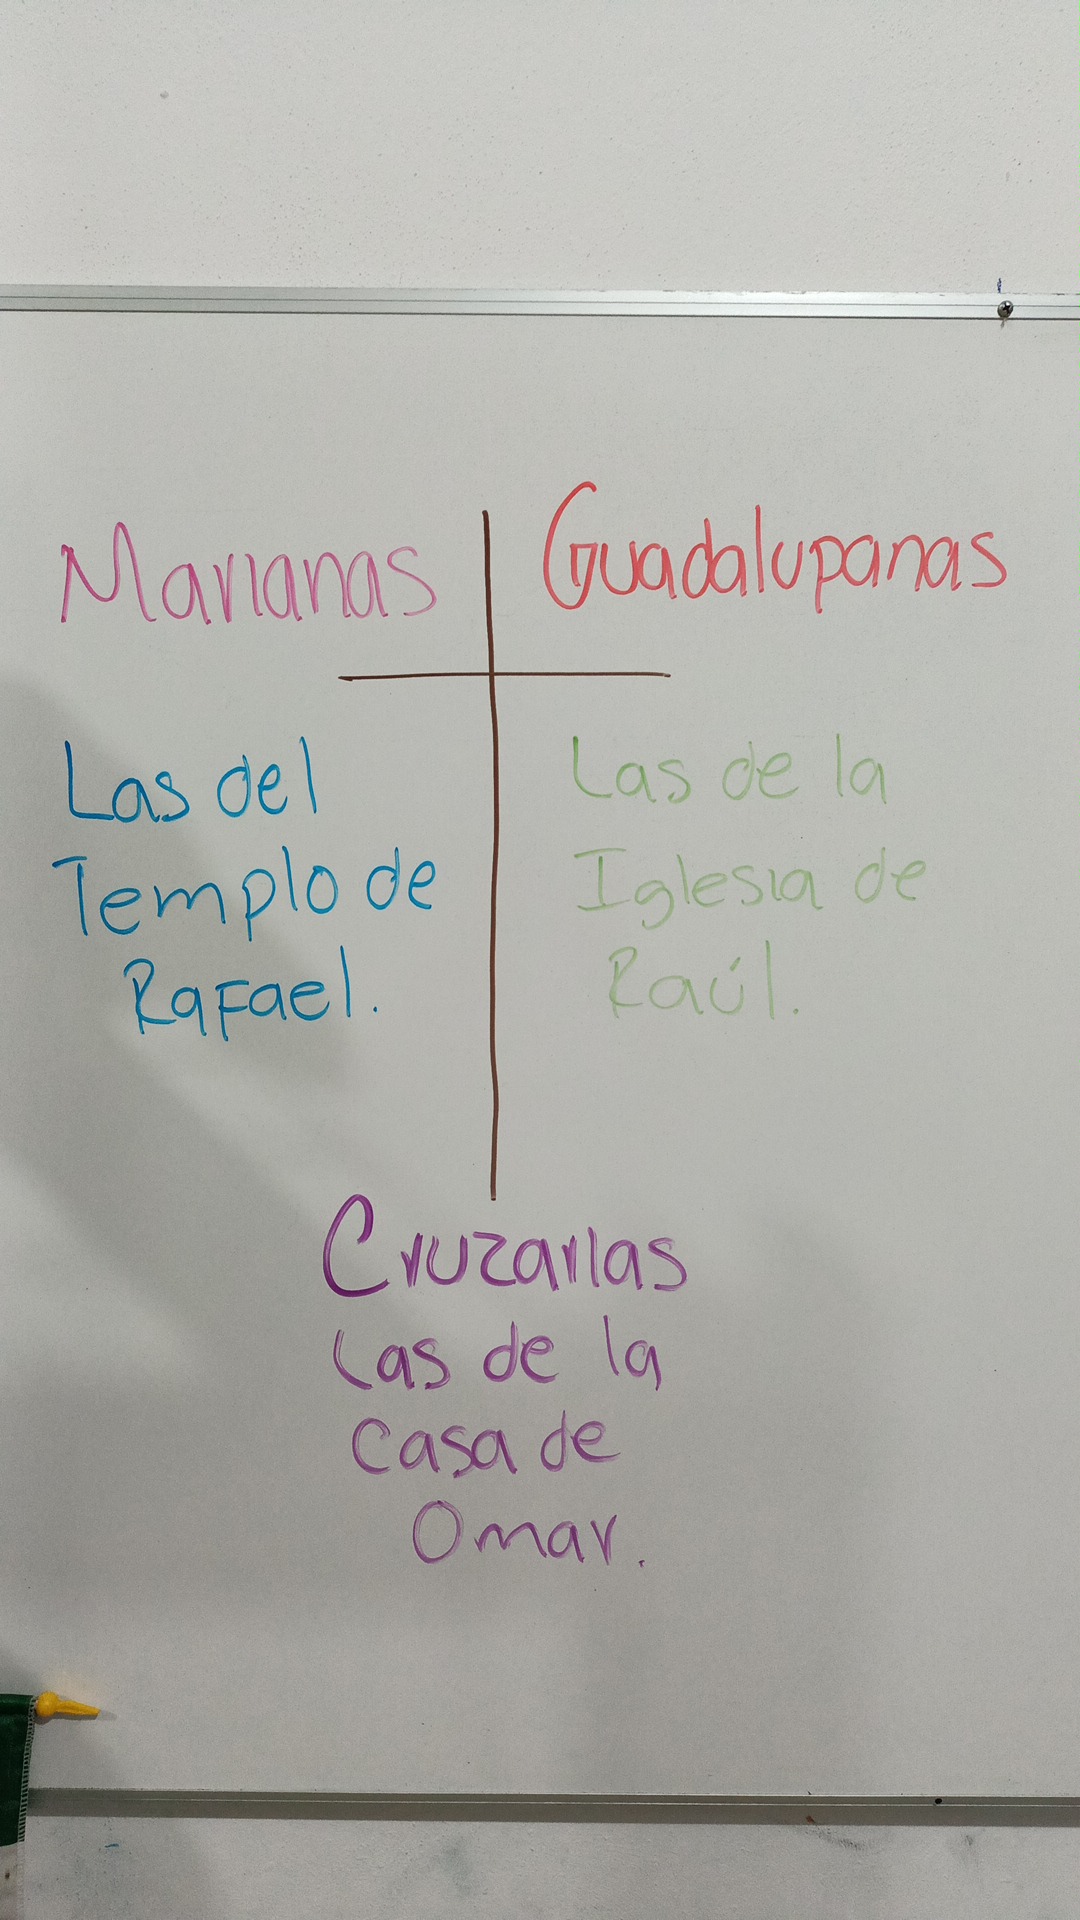 Marianas
Guadalupanas
Las del
Templo de
Rafael.
Las de la
Iglesia de
Raúl.
Cruzarlas
Las de la
Casa de
Omar.